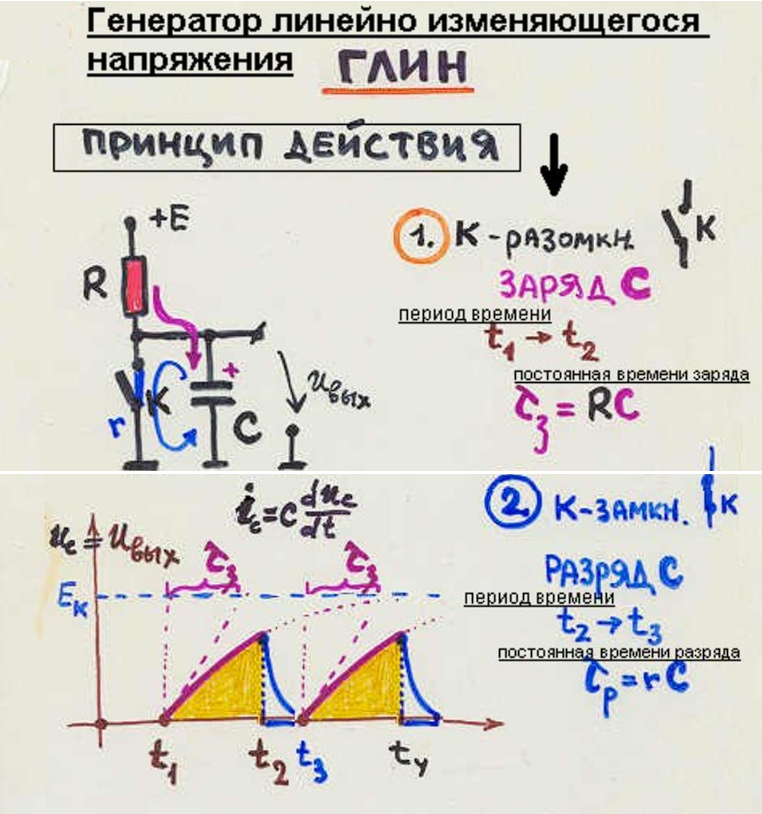 Генератор линейно изменяющегося
напряжения ГЛИН
ПРИНЦИП ДЕЙСТВИЯ
+E
R
K
r
+
C
uвых
1. К - разомкн. K
ЗАРЯД C
период времени
t1 → t2
постоянная времени заряда
τз = RC
ic = C duc/dt
uc = uвых
τз τз
Eк
t1 t2 t3 t4
2 К - ЗАМКН. K
РАЗРЯД C
период времени
t2 → t3
постоянная времени разряда
τр = rC